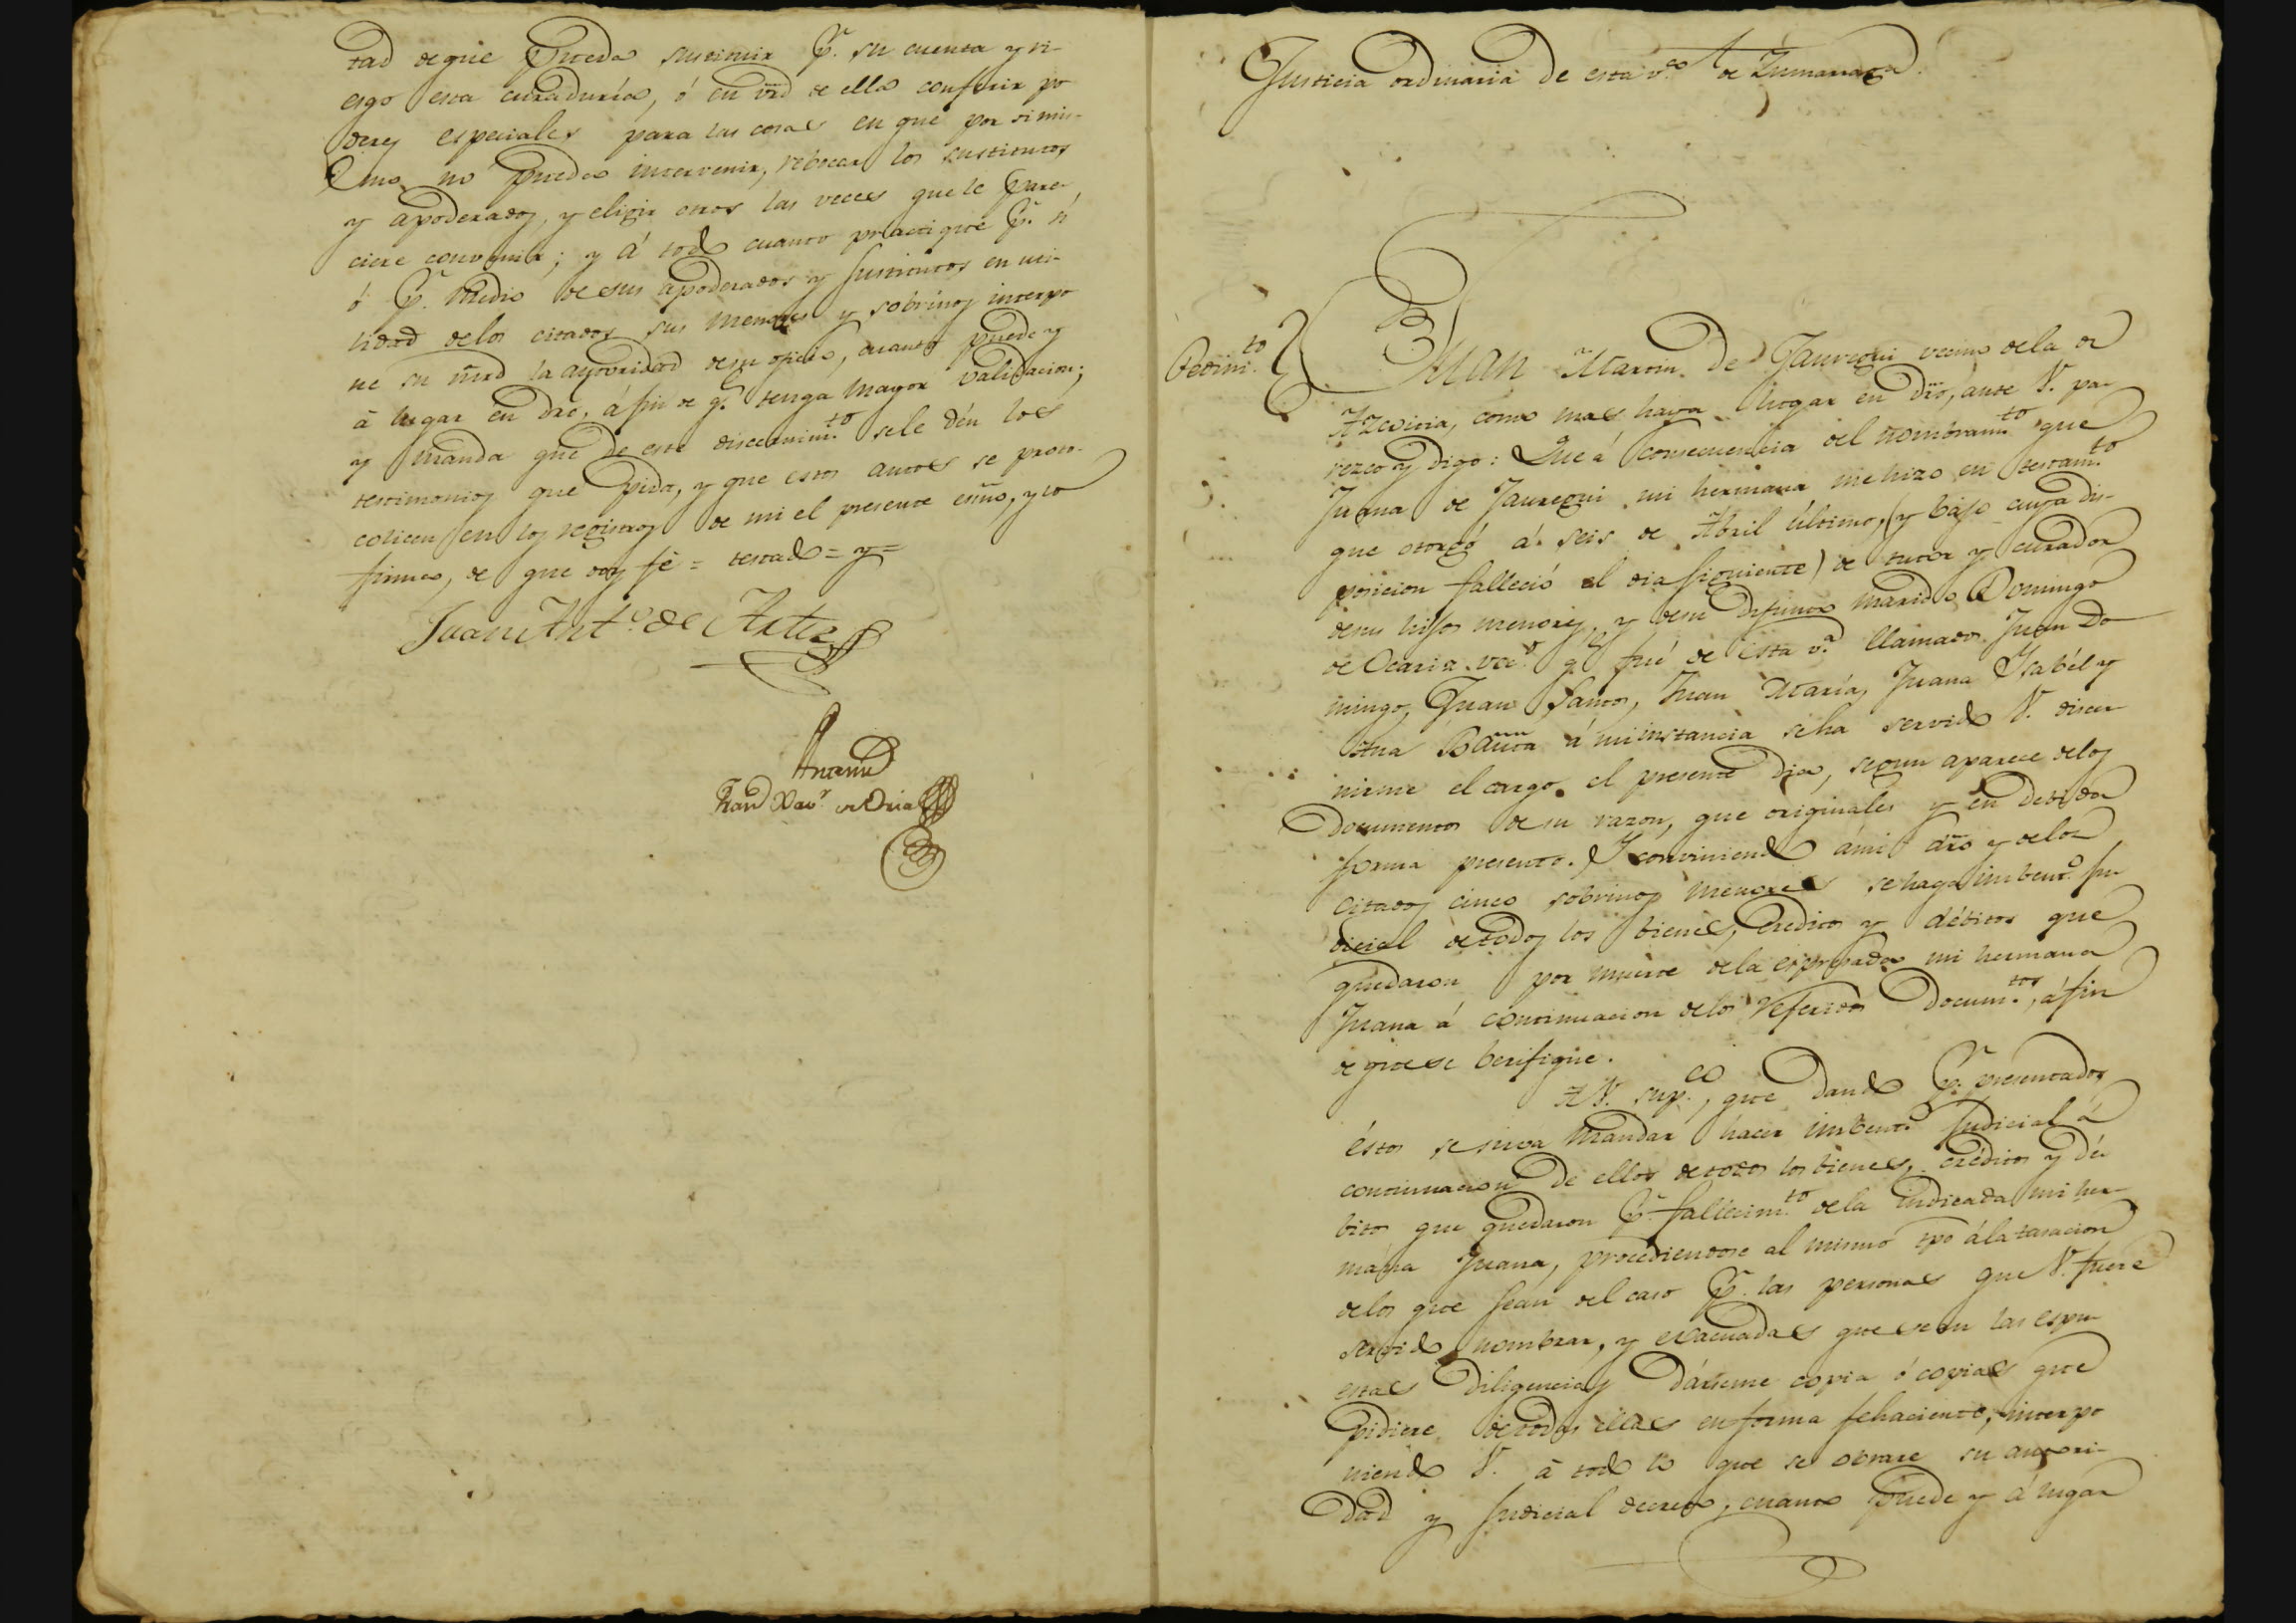 tad de que pueda sustituir p.r su cuenta y ri-
esgo esta curaduría, ó en vrd de ella conferir po
deres especiales para las cosas en que por si mis-
mo no pueda intervenir, rebocar los sustitutos
y apoderados, y eligir otros las veces que le pare-
ciere convenir; y á todo cuanto practique p.r si
ó p.r medio de sus apoderados y sustitutos en uti-
lidad de los citados sus menores y sobrinos interpo
ne su mrd la autoridad de su oficio, cuanto puede y
á lugar en dro, á fin de q.e tenga mayor validacion;
y manda que de este discernim.to se le dén los
testimonios que pida, y que estos autos se proto-
colicen en los registros de mi el presente esno, y lo
firmo, de que doy fé = testado = y =
Juan Ant.o de Artiz
Ante mi
Fran.co Xav.r de Oria
Justicia ordinaria de esta v.a de Zumarraga.
Pedim.to
Juan Martin de Jauregui vecino de la de
Azcoitia, como mas haya lugar en dro, ante V. pa-
rezco y digo: Que á consecuencia del nombram.to que
Juana de Jauregui mi hermana me hizo en testam.to
que otorgó á seis de Abril último, (y bajo cuya dis-
posicion falleció el dia siguiente) de tutor y curador
de sus hijos menores, y de su difunto marido Domingo
de Ocariz vec.o q.e fué de esta v.a llamados Juan Do-
mingo, Juan Santos, Juan María, Juana Ysabél y
Ana Bauta á mi instancia se ha servido V. discer-
nirme el cargo el presente dia, segun aparece de los
documentos de su razon, que originales y en debida
forma presento. Y conviniendo á mi dro y de los
citados cinco sobrinos menores se haga imbent.o ju-
dicial de todos los bienes, creditos y débitos que
quedaron por muerte de la espresada mi hermana
Juana á continuacion de los referidos docum.tos, á fin
de que se berifique.
A V. sup.co, que dando p.r presentados
éstos se sirva mandar hacer imbent.o judicial á
continuacion de ellos de todos los bienes, créditos y dé-
bitos que quedaron p.r fallecim.to de la indicada mi her-
mana Juana, procediendose al mismo tpo á la tasacion
de los que sean del caso p.r las personas que V. fuere
servido nombrar, y evacuadas que sean las espu-
estas diligencias dárseme copia ó copias que
pidiere de todas ellas en forma fehaciente, interpo
niendo V. á todo lo que se obrare su autori-
dad y judicial decreto, cuanto puede y á lugar